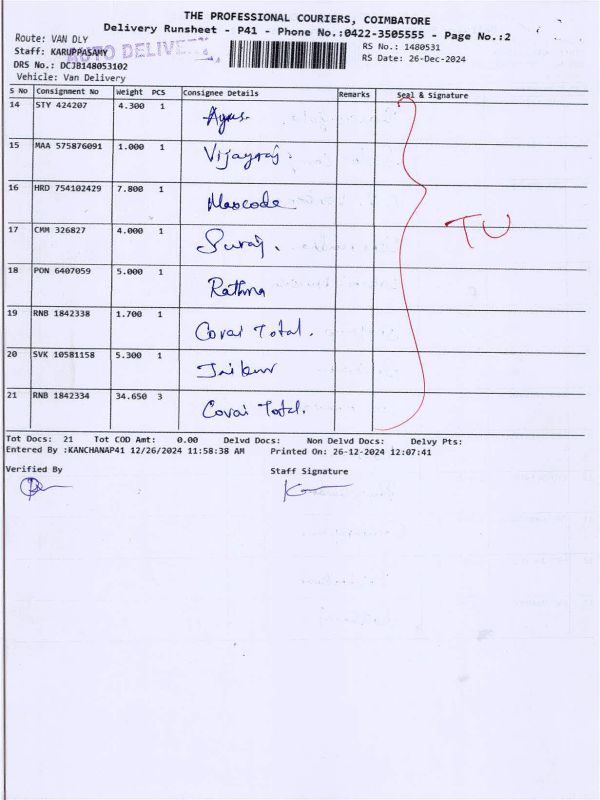 THE PROFESSIONAL COURIERS, COIMBATORE
Delivery Runsheet - P41 - Phone No.:0422-3505555 - Page No.:2
Route: VAN DLY
RS No.: 1480531
Staff: KARUPPASAMY
AUTO DELIVERY
RS Date: 26-Dec-2024
DRS No.: DCJB148053102
Vehicle: Van Delivery
S No Consignment No Weight PCS Consignee Details Remarks Seal & Signature
14 STY 424207 4.300 1
15 MAA 575876091 1.000 1 Vijayraj.
16 HRD 754102429 7.800 1 Maxcode
TU
17 CMM 326827 4.000 1 Suraj.
18 PON 6407059 5.000 1 Rathna
19 RNB 1842338 1.700 1 Covai Total.
20 SVK 10581158 5.300 1
21 RNB 1842334 34.650 3 Covai Total.
Tot Docs: 21 Tot COD Amt: 0.00 Delvd Docs: Non Delvd Docs: Delvy Pts:
Entered By :KANCHANAP41 12/26/2024 11:58:38 AM Printed On: 26-12-2024 12:07:41
Verified By Staff Signature